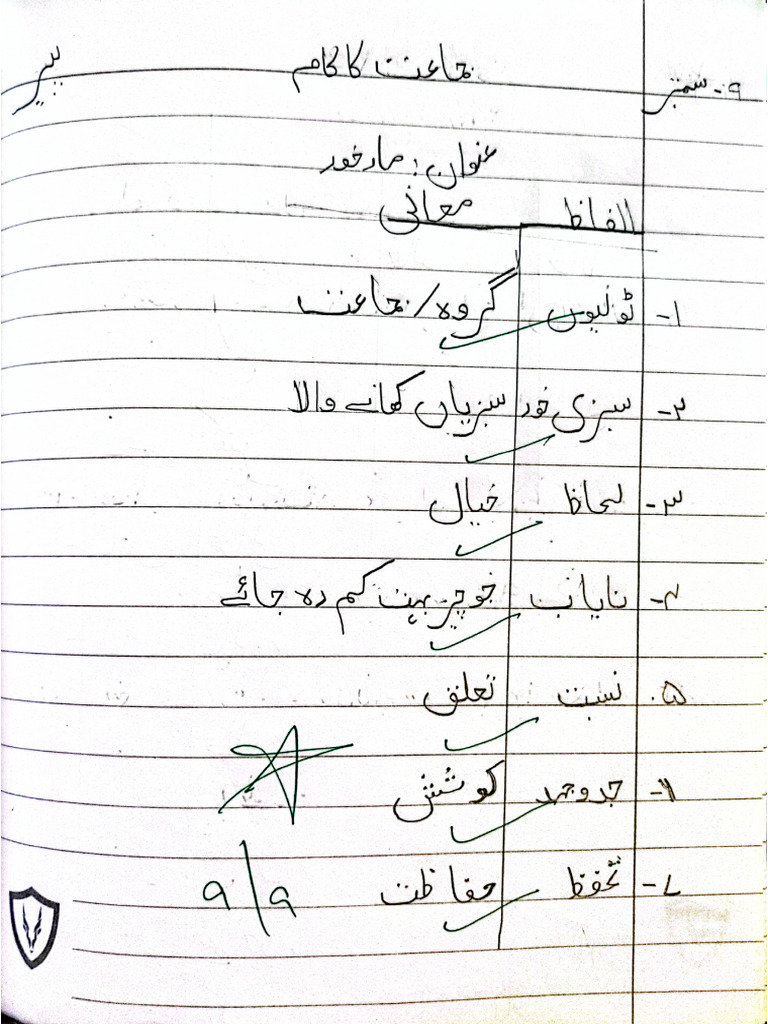 ۹ - ستمبر جماعت کا کام پیر
عنوان: مارخور
الفاظ معانی
۱- ٹولیوں گروہ/جماعت
۲- سبزی خور سبزیاں کھانے والا
۳- لحاظ خیال
۴- نایاب جو چیز بہت کم رہ جائے
۵. نسبت تعلق
۶- جدوجہد کوشش
۷- تحفظ حفاظت
۹/۹